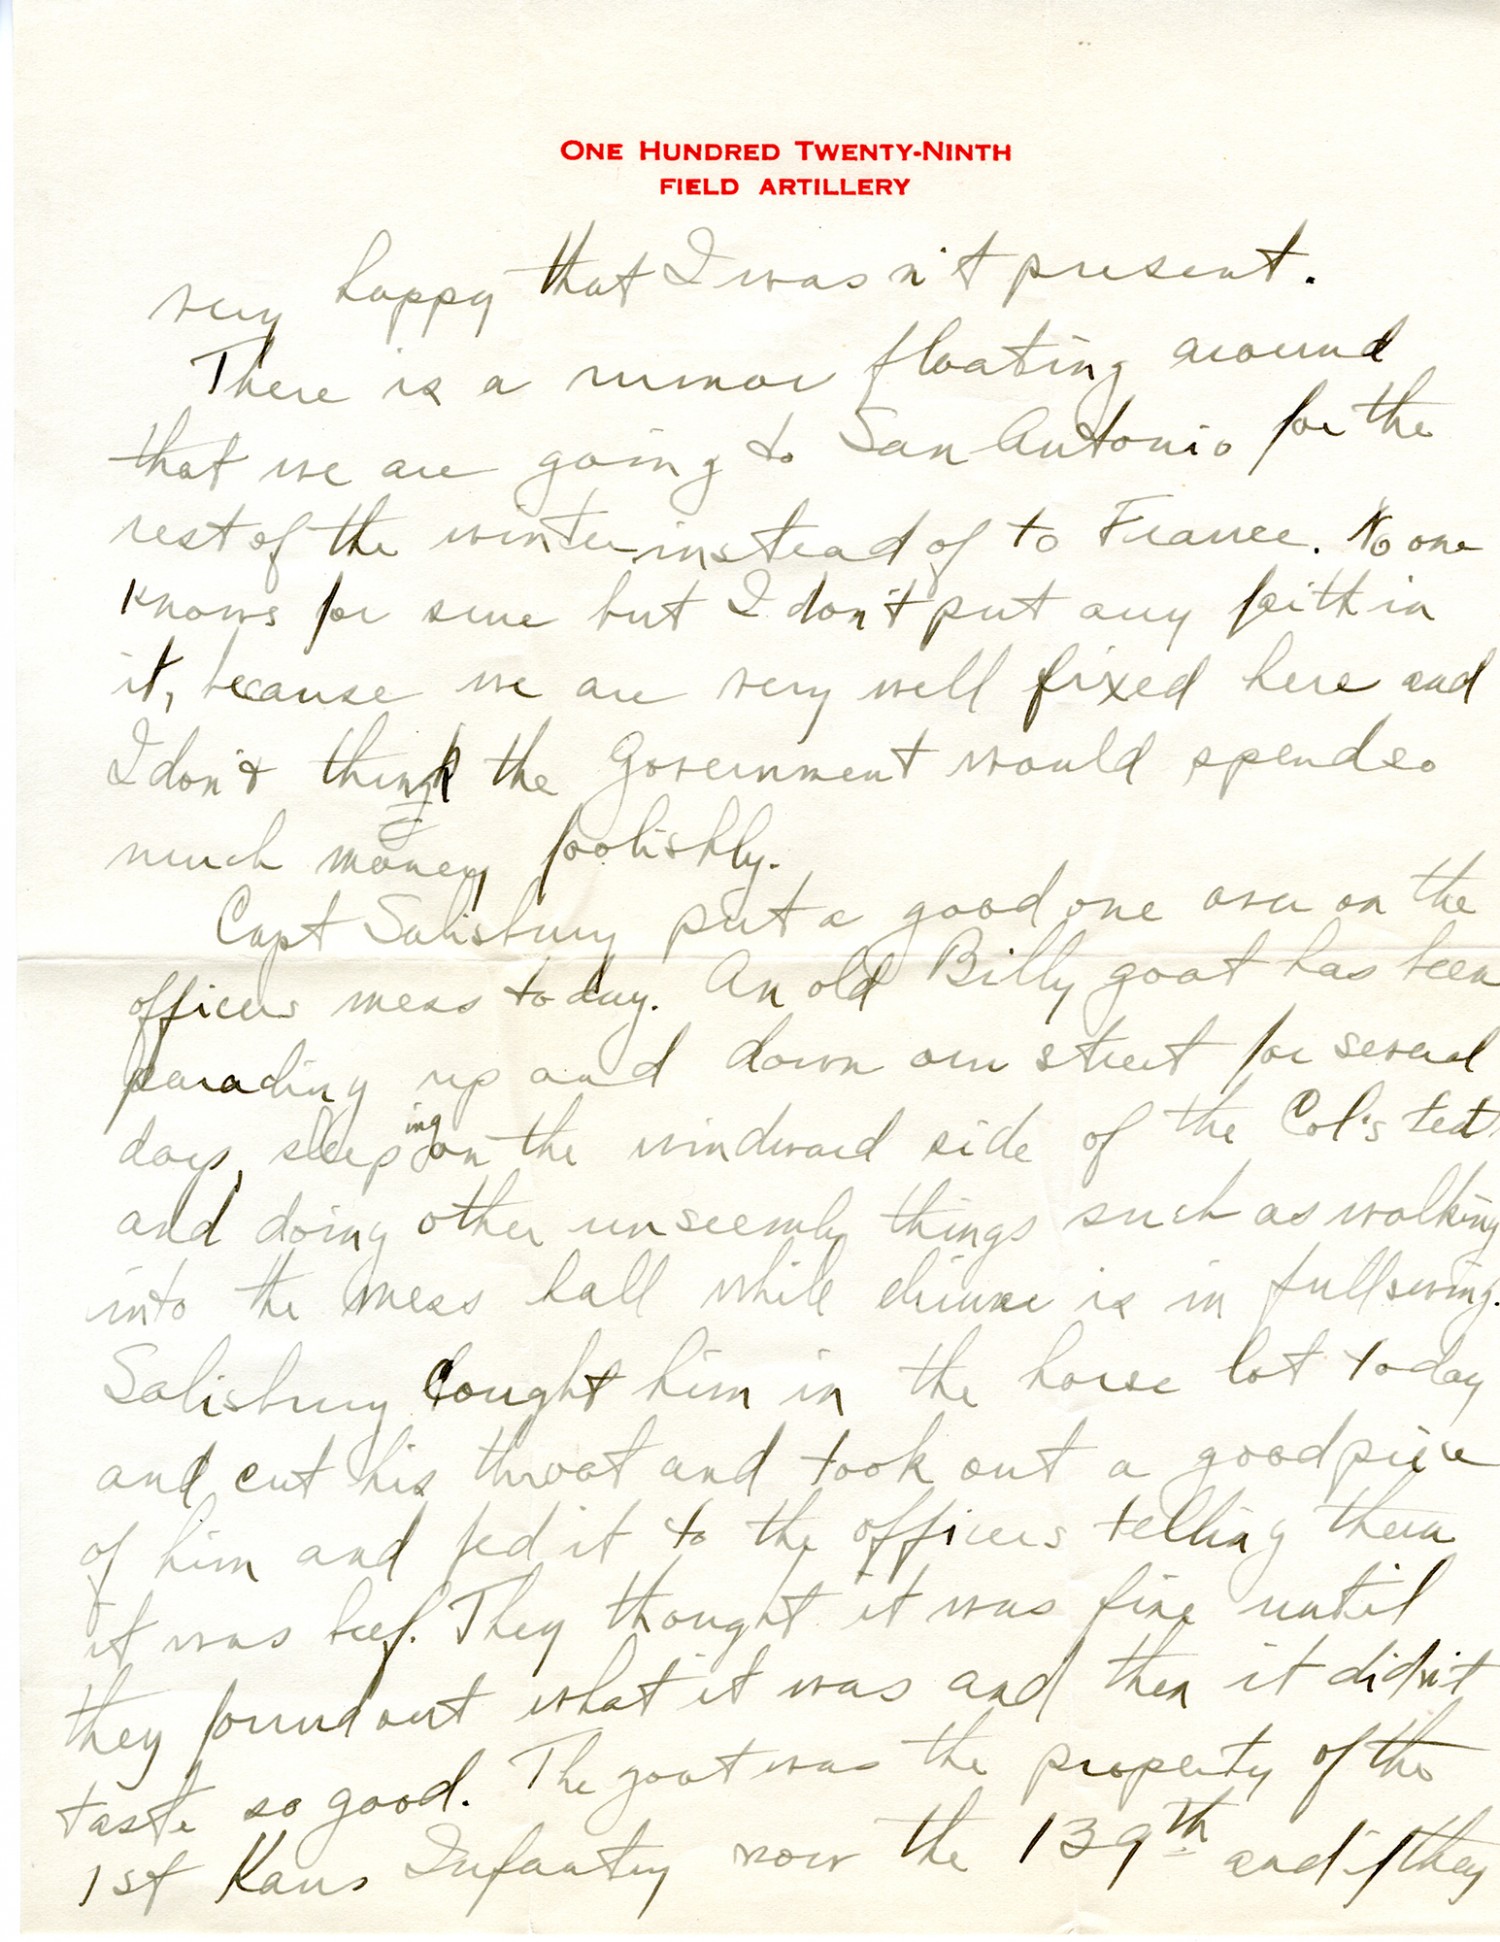 ONE HUNDRED TWENTY-NINTH
FIELD ARTILLERY
very happy that I wasn't present.
There is a rumor floating around
that we are going to San Antonio for the
rest of the winter instead of to France. No one
knows for sure but I don't put any faith in
it, because we are very well fixed here and
I don't think the Government would spend so
much money foolishly.
Capt Salisbury put a good one over on the
officers mess today. An old Billy goat has been
parading up and down our street for several
days, sleeping on the windward side of the Col's tent
and doing other unseemly things such as walking
into the mess hall while dinner is in full swing.
Salisbury caught him in the horse lot today
and cut his throat and took out a good piece
of him and fed it to the officers telling them
it was beef. They thought it was fine until
they found out what it was and then it didn't
taste so good. The goat was the property of the
1st Kans Infantry now the 139th and if they